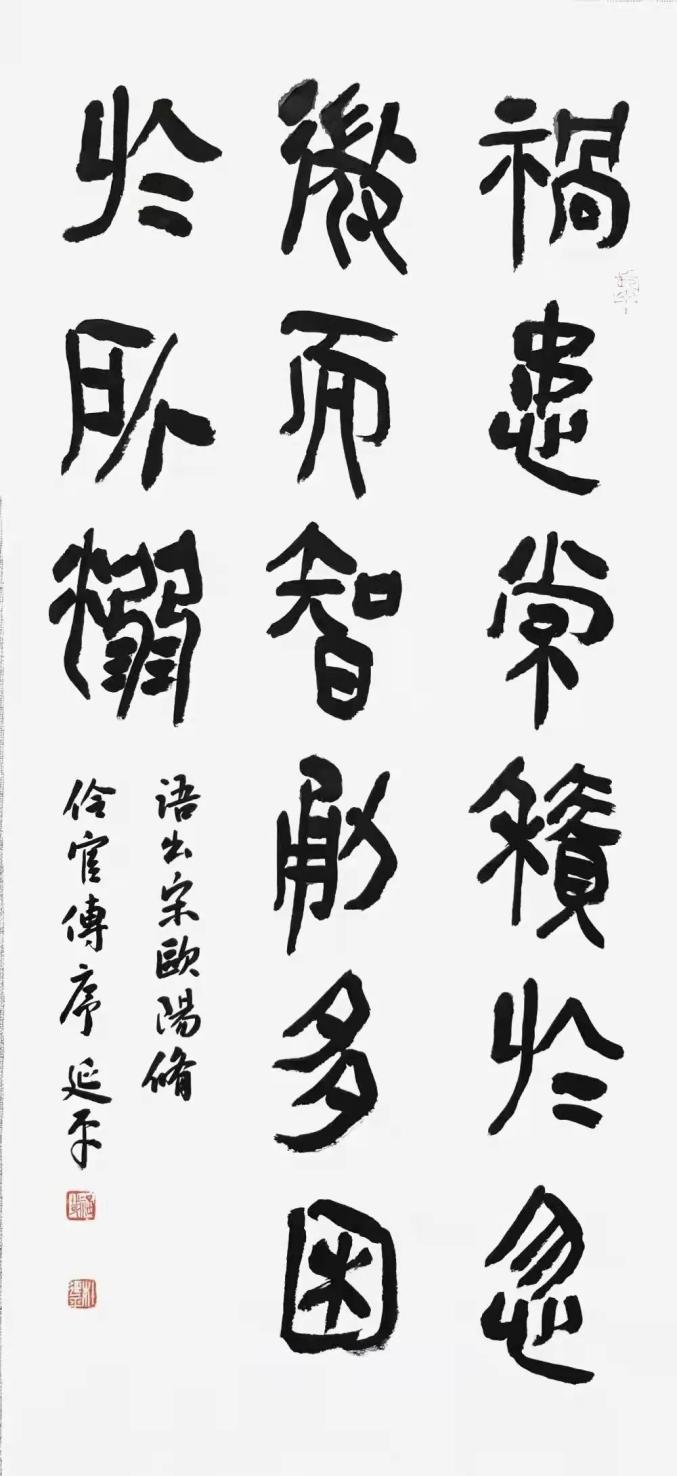 禍患常積於忽
微而智勇多困
於所溺
语出宋歐陽脩
伶官傳序 延平